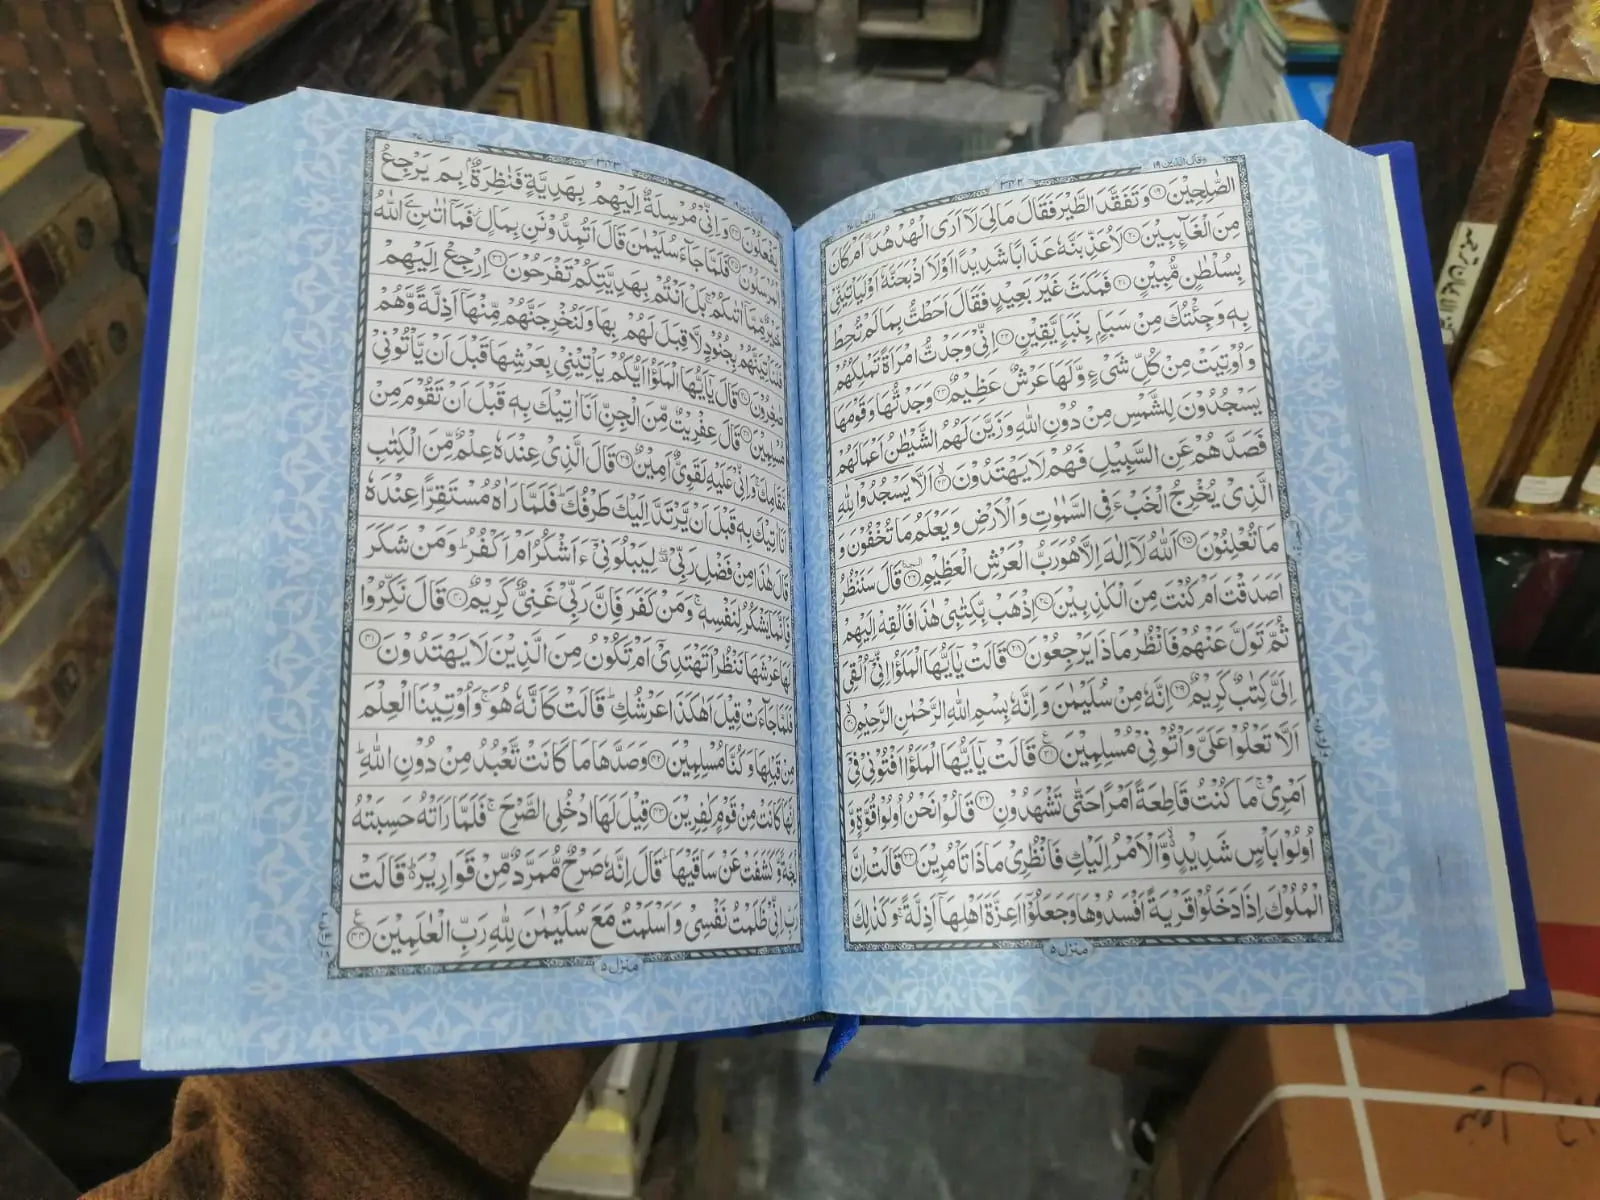 وقال الذين ١٩
٣٢٢
النمل ٢٧
الصّٰلِحِيْنَ ⑲ وَ تَفَقَّدَ الطَّيْرَ فَقَالَ مَا لِيَ لَاۤ اَرَى الْهُدْهُدَ اَمْ كَانَ
مِنَ الْغَآئِبِيْنَ ⑳ لَاُعَذِّبَنَّهٗ عَذَابًا شَدِيْدًا اَوْ لَاۡاَذْبَحَنَّهٗۤ اَوْ لَيَاْتِيَنِّيْ
بِسُلْطٰنٍ مُّبِيْنٍ ㉑ فَمَكَثَ غَيْرَ بَعِيْدٍ فَقَالَ اَحَطْتُّ بِمَا لَمْ تُحِطْ
بِهٖ وَ جِئْتُكَ مِنْ سَبَاٍۭ بِنَبَاٍ يَّقِيْنٍ ㉒ اِنِّيْ وَجَدْتُّ امْرَاَةً تَمْلِكُهُمْ
وَ اُوْتِيَتْ مِنْ كُلِّ شَيْءٍ وَّ لَهَا عَرْشٌ عَظِيْمٌ ㉓ وَجَدْتُّهَا وَ قَوْمَهَا
يَسْجُدُوْنَ لِلشَّمْسِ مِنْ دُوْنِ اللّٰهِ وَ زَيَّنَ لَهُمُ الشَّيْطٰنُ اَعْمَالَهُمْ
فَصَدَّهُمْ عَنِ السَّبِيْلِ فَهُمْ لَا يَهْتَدُوْنَ ㉔ اَلَّا يَسْجُدُوْا لِلّٰهِ
الَّذِيْ يُخْرِجُ الْخَبْءَ فِي السَّمٰوٰتِ وَ الْاَرْضِ وَ يَعْلَمُ مَا تُخْفُوْنَ وَ
مَا تُعْلِنُوْنَ ㉕ اَللّٰهُ لَاۤ اِلٰهَ اِلَّا هُوَ رَبُّ الْعَرْشِ الْعَظِيْمِ ㉖ قَالَ سَنَنْظُرُ
اَصَدَقْتَ اَمْ كُنْتَ مِنَ الْكٰذِبِيْنَ ㉗ اِذْهَبْ بِّكِتٰبِيْ هٰذَا فَاَلْقِهْ اِلَيْهِمْ
ثُمَّ تَوَلَّ عَنْهُمْ فَانْظُرْ مَا ذَا يَرْجِعُوْنَ ㉘ قَالَتْ يٰۤاَيُّهَا الْمَلَؤُا اِنِّيْۤ اُلْقِيَ
اِلَيَّ كِتٰبٌ كَرِيْمٌ ㉙ اِنَّهٗ مِنْ سُلَيْمٰنَ وَ اِنَّهٗ بِسْمِ اللّٰهِ الرَّحْمٰنِ الرَّحِيْمِ ㉚
اَلَّا تَعْلُوْا عَلَيَّ وَ اْتُوْنِيْ مُسْلِمِيْنَ ㉛ قَالَتْ يٰۤاَيُّهَا الْمَلَؤُا اَفْتُوْنِيْ فِيْۤ
اَمْرِيْ ۚ مَا كُنْتُ قَاطِعَةً اَمْرًا حَتّٰى تَشْهَدُوْنِ ㉜ قَالُوْا نَحْنُ اُولُوْا قُوَّةٍ وَّ
اُولُوْا بَاْسٍ شَدِيْدٍ ۙ وَّ الْاَمْرُ اِلَيْكِ فَانْظُرِيْ مَا ذَا تَاْمُرِيْنَ ㉝ قَالَتْ اِنَّ
الْمُلُوْكَ اِذَا دَخَلُوْا قَرْيَةً اَفْسَدُوْهَا وَ جَعَلُوْۤا اَعِزَّةَ اَهْلِهَاۤ اَذِلَّةً ۚ وَ كَذٰلِكَ
منزل ٥
النمل ٢٧
٣٢٣
يَفْعَلُوْنَ ㉞ وَ اِنِّيْ مُرْسِلَةٌ اِلَيْهِمْ بِهَدِيَّةٍ فَنٰظِرَةٌۢ بِمَ يَرْجِعُ
الْمُرْسَلُوْنَ ㉟ فَلَمَّا جَآءَ سُلَيْمٰنَ قَالَ اَتُمِدُّوْنَنِ بِمَالٍ فَمَاۤ اٰتٰىنِۦَ اللّٰهُ
خَيْرٌ مِّمَّاۤ اٰتٰىكُمْ ۚ بَلْ اَنْتُمْ بِهَدِيَّتِكُمْ تَفْرَحُوْنَ ㊱ اِرْجِعْ اِلَيْهِمْ
فَلَنَاْتِيَنَّهُمْ بِجُنُوْدٍ لَّا قِبَلَ لَهُمْ بِهَا وَ لَنُخْرِجَنَّهُمْ مِّنْهَاۤ اَذِلَّةً وَّ هُمْ
صٰغِرُوْنَ ㊲ قَالَ يٰۤاَيُّهَا الْمَلَؤُا اَيُّكُمْ يَاْتِيْنِيْ بِعَرْشِهَا قَبْلَ اَنْ يَّاْتُوْنِيْ
مُسْلِمِيْنَ ㊳ قَالَ عِفْرِيْتٌ مِّنَ الْجِنِّ اَنَا اٰتِيْكَ بِهٖ قَبْلَ اَنْ تَقُوْمَ مِنْ
مَّقَامِكَ ۚ وَ اِنِّيْ عَلَيْهِ لَقَوِيٌّ اَمِيْنٌ ㊴ قَالَ الَّذِيْ عِنْدَهٗ عِلْمٌ مِّنَ الْكِتٰبِ
اَنَا اٰتِيْكَ بِهٖ قَبْلَ اَنْ يَّرْتَدَّ اِلَيْكَ طَرْفُكَ ؕ فَلَمَّا رَاٰهُ مُسْتَقِرًّا عِنْدَهٗ
قَالَ هٰذَا مِنْ فَضْلِ رَبِّيْ ۖ لِيَبْلُوَنِيْۤ ءَاَشْكُرُ اَمْ اَكْفُرُ ؕ وَ مَنْ شَكَرَ
فَاِنَّمَا يَشْكُرُ لِنَفْسِهٖ ۚ وَ مَنْ كَفَرَ فَاِنَّ رَبِّيْ غَنِيٌّ كَرِيْمٌ ㊵ قَالَ نَكِّرُوْا
لَهَا عَرْشَهَا نَنْظُرْ اَتَهْتَدِيْۤ اَمْ تَكُوْنُ مِنَ الَّذِيْنَ لَا يَهْتَدُوْنَ ㊶
فَلَمَّا جَآءَتْ قِيْلَ اَهٰكَذَا عَرْشُكِ ؕ قَالَتْ كَاَنَّهٗ هُوَ ۚ وَ اُوْتِيْنَا الْعِلْمَ
مِنْ قَبْلِهَا وَ كُنَّا مُسْلِمِيْنَ ㊷ وَ صَدَّهَا مَا كَانَتْ تَّعْبُدُ مِنْ دُوْنِ اللّٰهِ ؕ
اِنَّهَا كَانَتْ مِنْ قَوْمٍ كٰفِرِيْنَ ㊸ قِيْلَ لَهَا ادْخُلِي الصَّرْحَ ۚ فَلَمَّا رَاَتْهُ حَسِبَتْهُ
لُجَّةً وَّ كَشَفَتْ عَنْ سَاقَيْهَا ؕ قَالَ اِنَّهٗ صَرْحٌ مُّمَرَّدٌ مِّنْ قَوَارِيْرَ ؕ قَالَتْ
رَبِّ اِنِّيْ ظَلَمْتُ نَفْسِيْ وَ اَسْلَمْتُ مَعَ سُلَيْمٰنَ لِلّٰهِ رَبِّ الْعٰلَمِيْنَ ㊹
منزل ٥